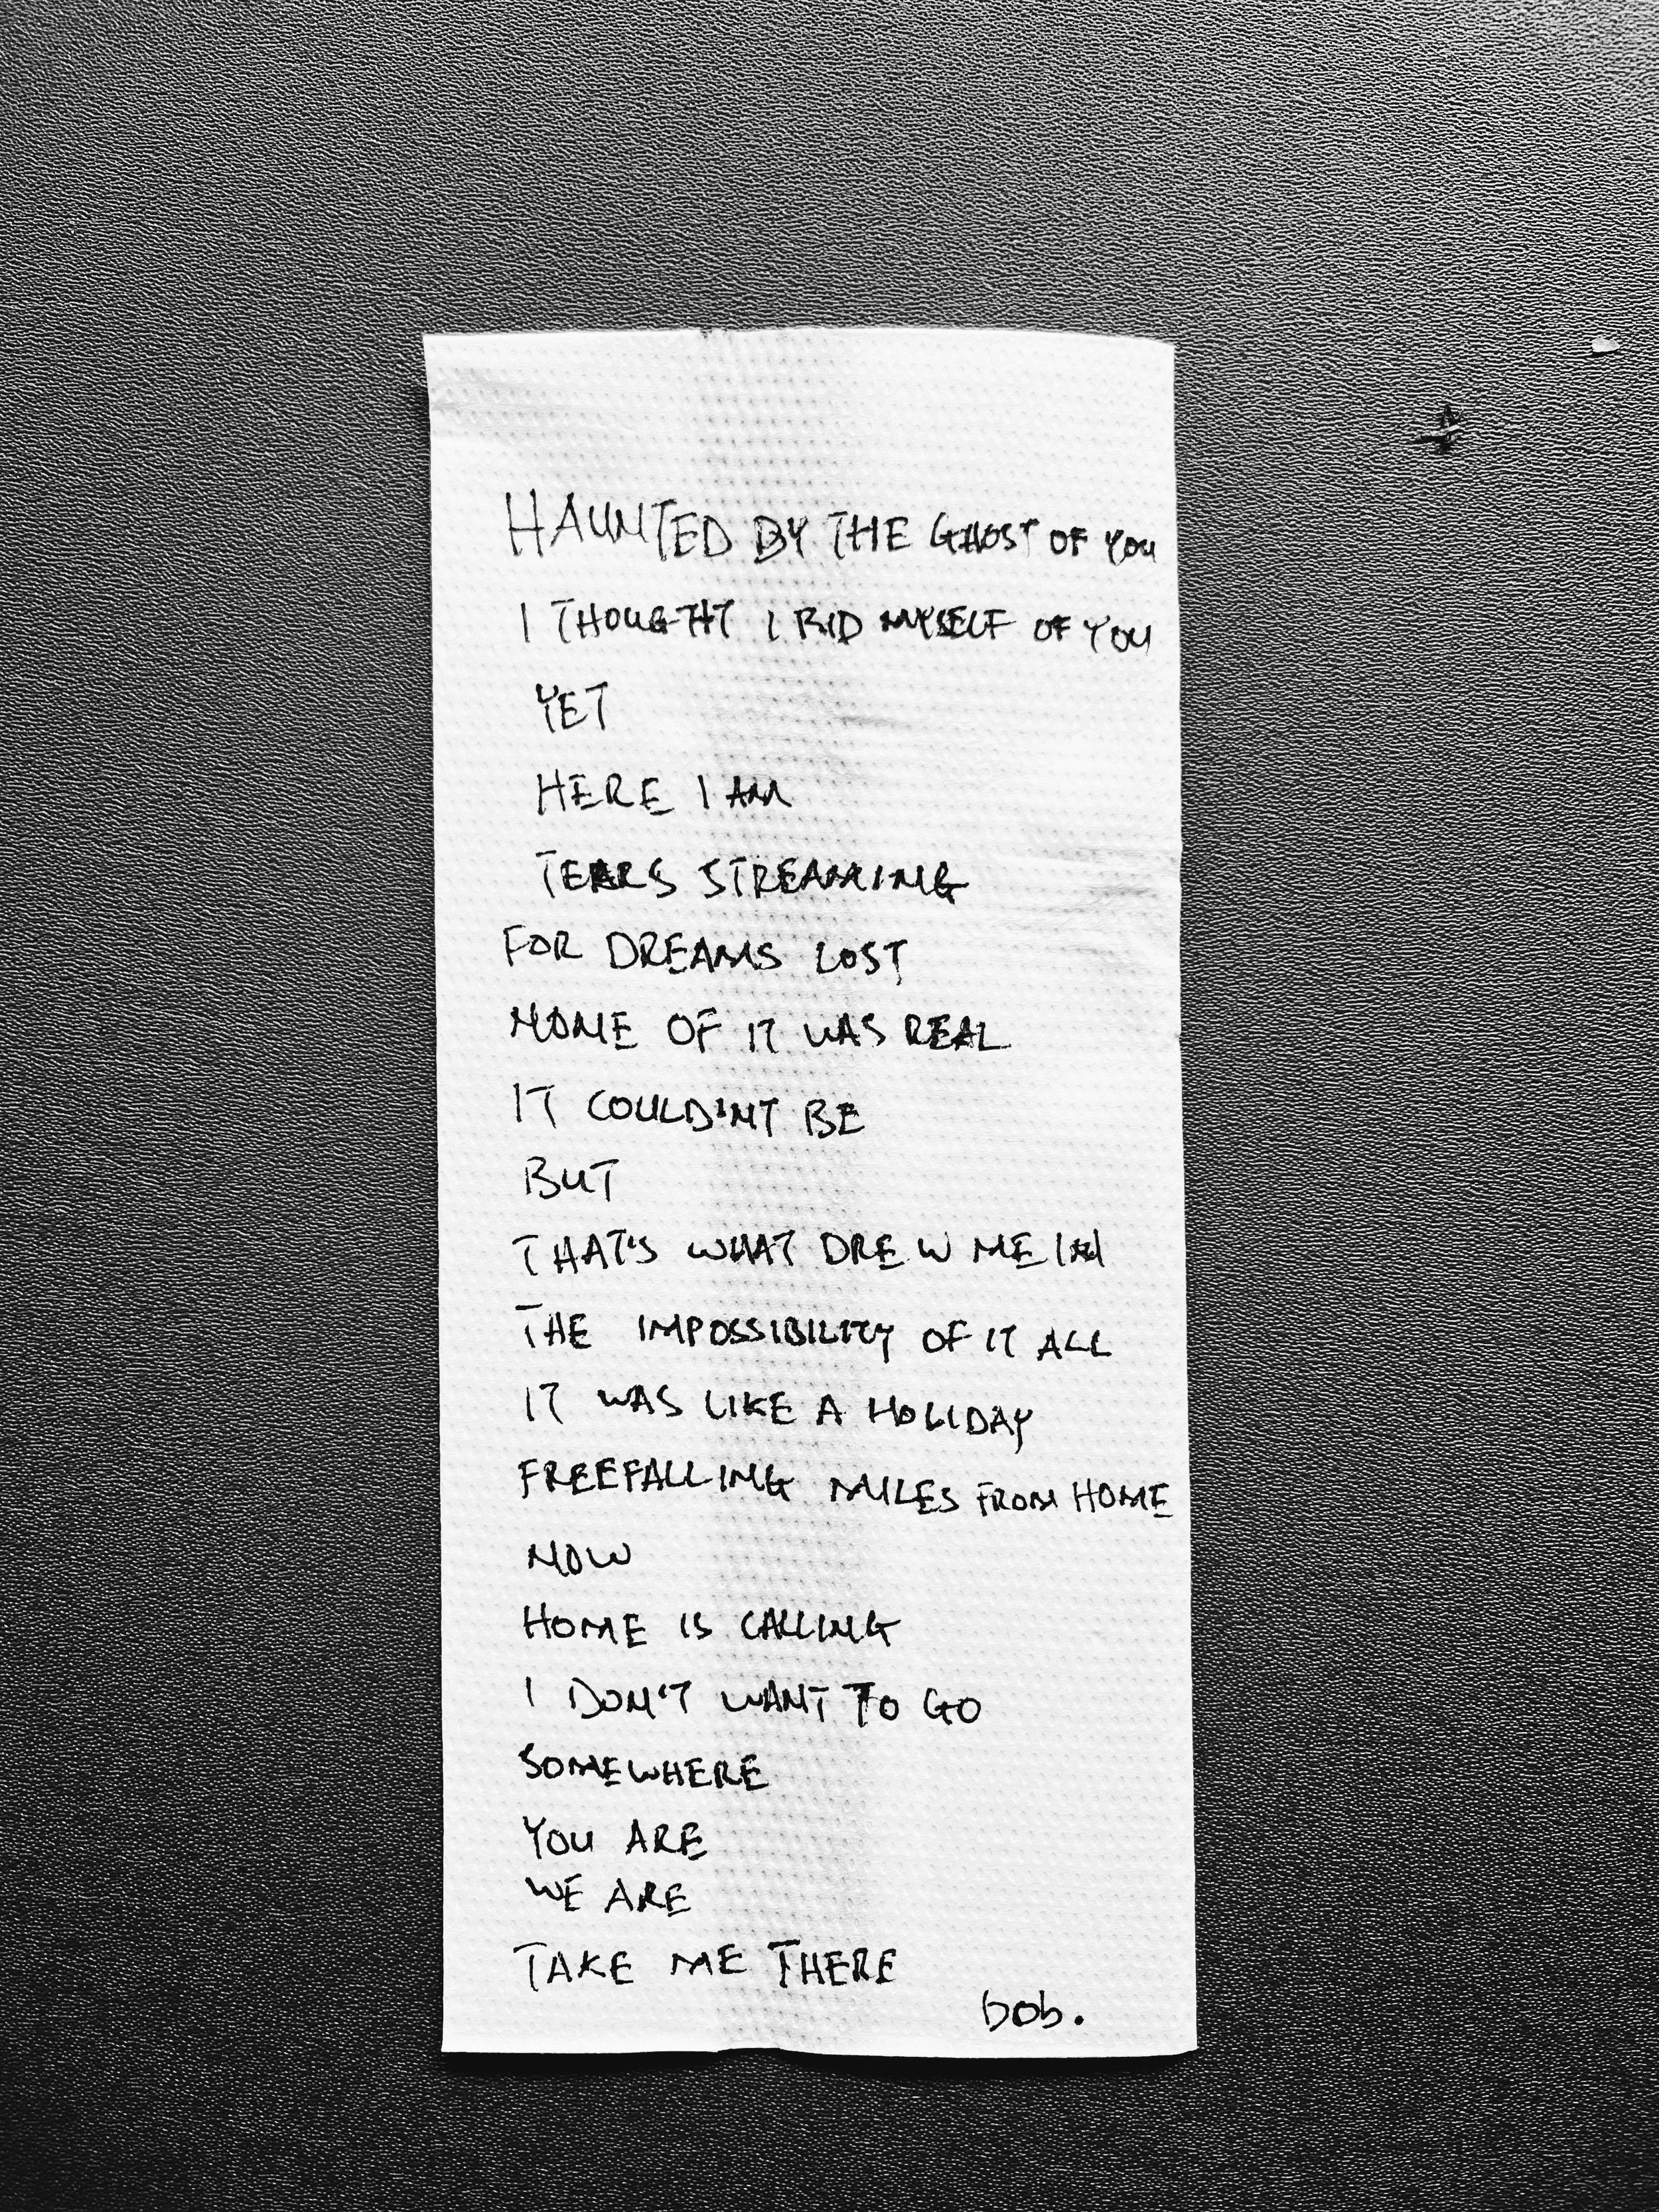 HAUNTED BY THE GHOST OF YOU
I THOUGHT I RID MYSELF OF YOU
YET
HERE I AM
TEARS STREAMING
FOR DREAMS LOST
NONE OF IT WAS REAL
IT COULD'NT BE
BUT
THAT'S WHAT DREW ME IN
THE IMPOSSIBILITY OF IT ALL
IT WAS LIKE A HOLIDAY
FREEFALLING MILES FROM HOME
NOW
HOME IS CALLING
I DON'T WANT TO GO
SOMEWHERE
YOU ARE
WE ARE
TAKE ME THERE
bob.